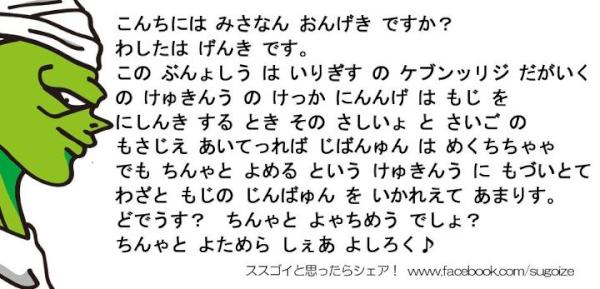 こんちには みさなん おんげき ですか？
わしたは げんき です。
この ぶんょしう は いりぎす の ケブンッリジ だがいく
の けゅきんう の けっか にんんげ は もじ を
にしんき する とき その さしいょ と さいご の
もさじえ あいてっれば じばんゅん は めくちちゃゃ
でも ちんゃと よめる という けゅきんう に もづいとて
わざと もじの じんばゅん を いかれえて あまりす。
どでうす？　ちんゃと よゃちめう でしょ？
ちんゃと よためら しぇあ よしろく♪
ススゴイと思ったらシェア！ www.facebook.com/sugoize